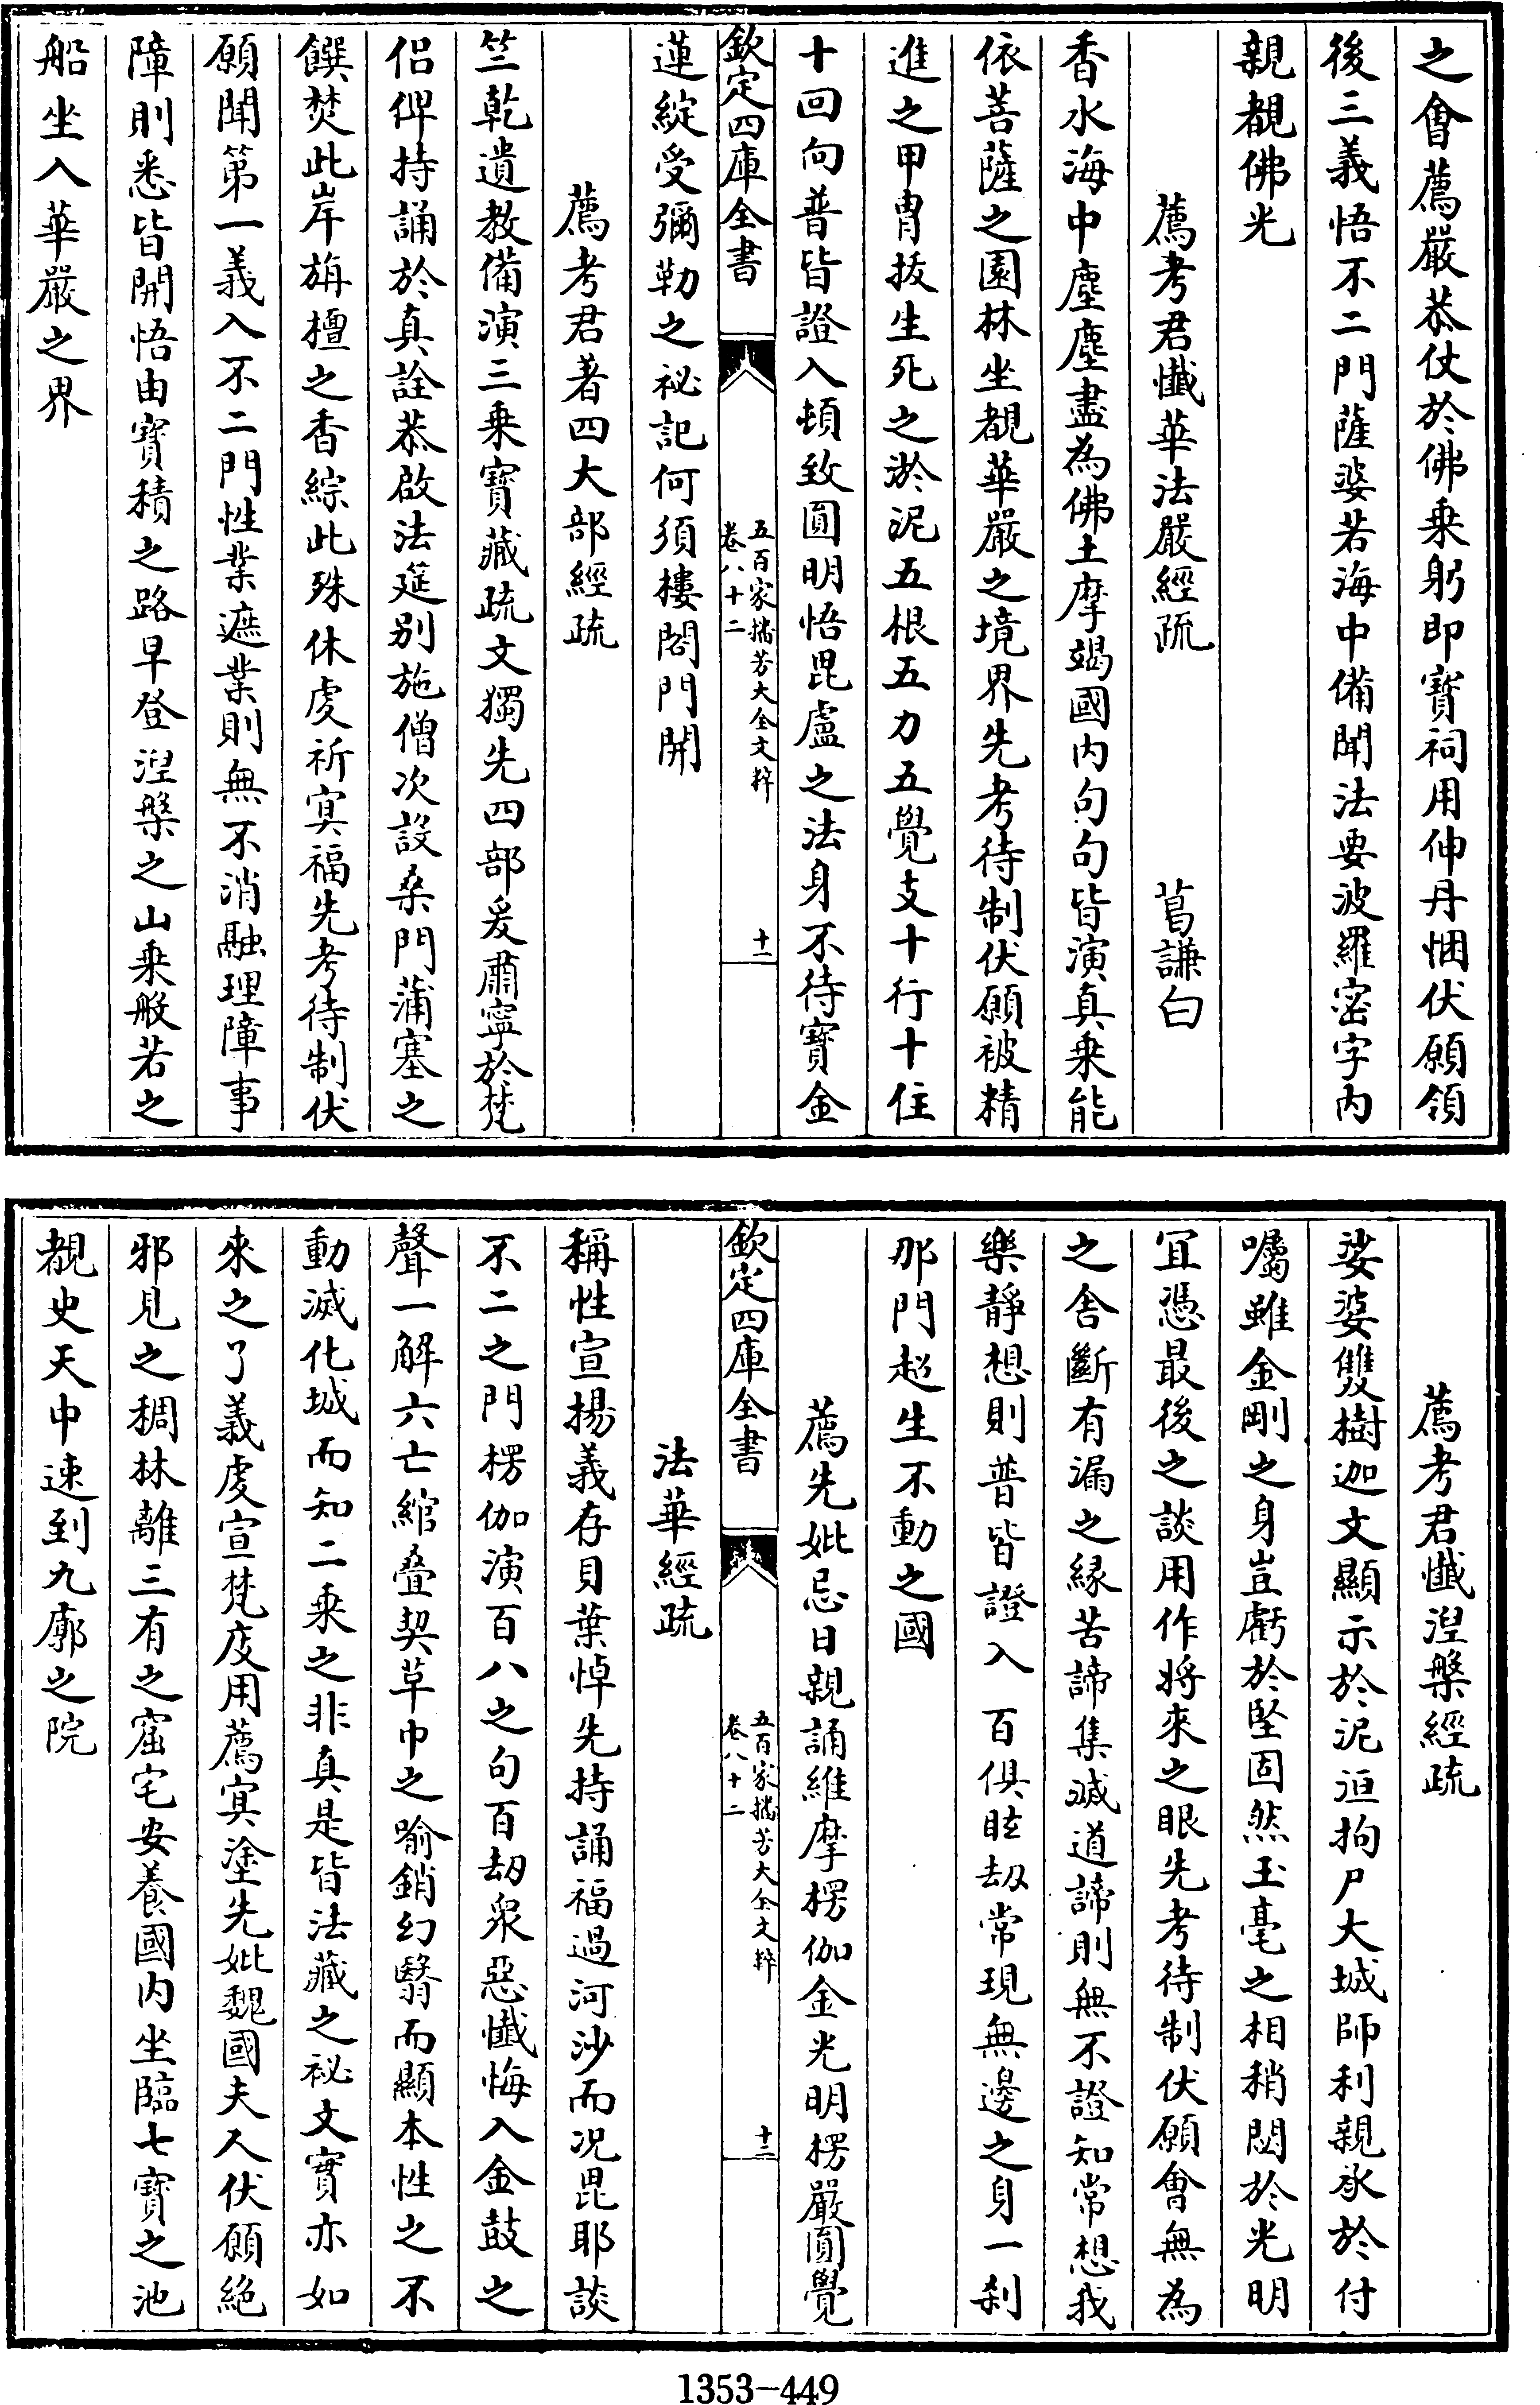 之會薦嚴恭仗於佛乘躬即寶祠用伸丹悃伏願領
後三義悟不二門薩婆若海中備聞法要波羅密字内
親覩佛光
薦考君懴華法嚴經疏　葛謙白
香水海中塵塵盡為佛土摩竭國内句句皆演真乗能
依菩薩之園林坐覩華嚴之境界先考待制伏願被精
進之甲胄拔生死之淤泥五根五力五覺支十行十住
十回向普皆證入頓致圓明悟毘盧之法身不待寶金
欽定四庫全書
五百家播芳大全文粹
卷八十二
十一
蓮綻受彌勒之祕記何須樓閣門開
薦考君著四大部經疏
竺乾遺教備演三乗寶藏疏文獨先四部爰肅寧於梵
侣俾持誦於真詮恭啟法筵别施僧次設桑門蒲塞之
饌焚此岸旃檀之香綜此殊休虔祈冥福先考待制伏
願聞第一義入不二門性業遮業則無不消融理障事
障則悉皆開悟由寶積之路早登湼槃之山乗般若之
船坐入華嚴之界
薦考君懴湼槃經疏
娑婆雙樹迦文顯示於泥洹拘尸大城師利親承於付
囑雖金剛之身豈虧於堅固然玉毫之相稍閟於光明
冝憑最後之談用作將來之眼先考待制伏願會無為
之舍斷有漏之縁苦諦集滅道諦則無不證知常想我
樂靜想則普皆證入百俱眩刼常現無邊之身一刹
那門超生不動之國
薦先妣忌日親誦維摩楞伽金光明楞嚴圓覺
欽定四庫全書
五百家播芳大全文粹
卷八十二
十二
法華經疏
稱性宣揚義存貝葉悼先持誦福過河沙而况毘耶談
不二之門楞伽演百八之句百刼衆惡懴悔入金鼓之
聲一解六亡綰疊契草巾之喻銷幻翳而顯本性之不
動滅化城而知二乗之非真是皆法藏之祕文實亦如
來之了義虔宣梵夾用薦冥塗先妣魏國夫人伏願絶
邪見之稠林離三有之窟宅安養國内坐臨七寶之池
覩史天中速到九廓之院
1353-449